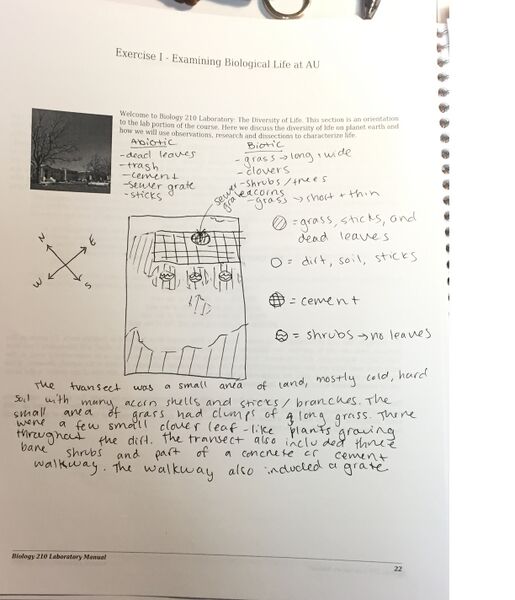 Exercise I - Examining Biological Life at AU
Welcome to Biology 210 Laboratory: The Diversity of Life. This section is an orientation
to the lab portion of the course. Here we discuss the diversity of life on planet earth and
how we will use observations, research and dissections to characterize life.
Abiotic
- dead leaves
- trash
- cement
- sewer grate
- sticks
Biotic
- grass → long + wide
- clovers
- shrubs / trees
- acorns
- grass → short + thin
sewer
grate
N
E
W
S
= grass, sticks, and
dead leaves
= dirt, soil, sticks
= cement
= shrubs → no leaves
The transect was a small area of land, mostly cold, hard
soil with many acorn shells and sticks / branches. The
small area of grass had clumps of long grass. There
were a few small clover leaf-like plants growing
throughout the dirt. The transect also included three
bare shrubs and part of a concrete or cement
walkway. The walkway also included a grate
Biology 210 Laboratory Manual
22